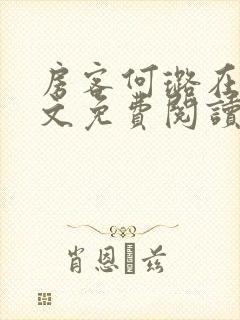 房客何璐在
文免费閱讀
肖恩・兹